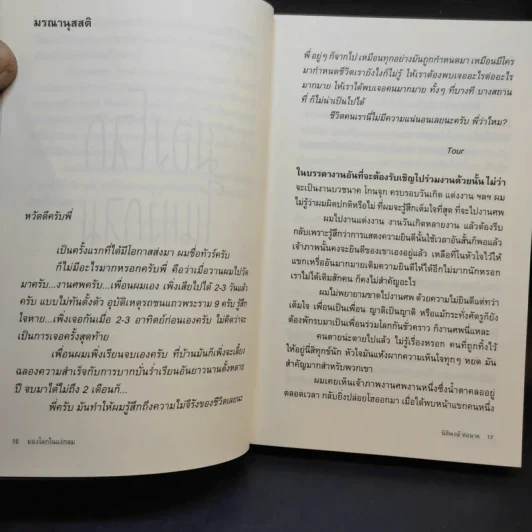 มรณานุสสติ
หวัดดีครับพี่
เป็นครั้งแรกที่ได้มีโอกาสส่งมา ผมชื่อทัวร์ครับ
ก็ไม่มีอะไรมากหรอกครับพี่ คือว่าเมื่อวานผมไปวัด
มาครับ...งานศพครับ...เพื่อนผมเอง เพิ่งเสียไปได้ 2-3 วันแล้ว
ครับ แบบไม่ทันตั้งตัว อุบัติเหตุรถชนแถวพระราม 9 ครับ รู้สึก
ใจหาย...เพิ่งเจอกันเมื่อ 2-3 อาทิตย์ก่อนเองครับ ไม่คิดว่าจะ
เป็นการเจอครั้งสุดท้าย
เพื่อนผมเพิ่งเรียนจบเองครับ ที่บ้านมันก็เพิ่งจะเลี้ยง
ฉลองความสำเร็จกับการบากบั่นร่ำเรียนอันยาวนานตั้งหลาย
ปี จบมาได้ไม่ถึง 2 เดือนก็...
พี่ครับ มันทำให้ผมรู้สึกถึงความไม่จีรังของชีวิตเลยนะ
16 มองโลกในแง่กลม
พี่ อยู่ๆ ก็จากไป เหมือนทุกอย่างมันถูกกำหนดมา เหมือนมีใคร
มากำหนดชีวิตเรายังไงก็ไม่รู้ ให้เราต้องพบเจออะไรต่ออะไร
มากมาย ให้เราได้พบเจอคนมากมาย ทั้งๆ ที่บางที บางสถาน
ที่ ก็ไม่น่าเป็นไปได้
ชีวิตคนเรานี่ไม่มีความแน่นอนเลยนะครับ พี่ว่าไหม?
Tour
ในบรรดางานอันที่จะต้องรับเชิญไปร่วมงานด้วยนั้น ไม่ว่า
จะเป็นงานบวชนาค โกนจุก ครบรอบวันเกิด แต่งงาน ฯลฯ ผม
ไม่รู้ว่าผมผิดปกติหรือไม่ ที่ผมจะรู้สึกเต็มใจที่สุด ที่จะไปงานศพ
ผมไปงานแต่งงาน งานวันเกิดหลายงาน แล้วต้องรีบ
กลับเพราะรู้สึกว่าการแสดงความยินดีนั้นใช้เวลาอันสั้นก็พอแล้ว
เจ้าภาพนั้นคงจะยินดีของเขาเองอยู่แล้ว เหลือที่ในหัวใจไว้ให้
แขกเหรื่ออันมากมายเติมความยินดีให้ได้อีกไม่มากนักหรอก
เราไม่ได้เติมสักคน ก็คงไม่สำคัญอะไร
ผมไม่พยายามขาดไปงานศพ ด้วยความไม่ยินดีแต่ทว่า
เต็มใจ เพื่อนเป็นเพื่อน ญาติเป็นญาติ หรือแม้กระทั่งศัตรูก็ยัง
ต้องพักรบมาเป็นเพื่อนร่วมโลกกันชั่วคราว ก็งานศพนี่แหละ
คนตายน่ะตายไปแล้ว ไม่รู้เรื่องหรอก คนที่ถูกทิ้งไว้
ให้อยู่นี่สิทุกข์นัก หัวใจมันแห้งผากความเห็นใจทุกๆ หยด มัน
สำคัญมากสำหรับพวกเขา
ผมเคยเห็นเจ้าภาพงานศพงานหนึ่งซึ่งน้ำตาคลออยู่
ตลอดเวลา กลับยิ่งปล่อยโฮออกมา เมื่อได้พบหน้าแขกคนหนึ่ง
นิติพงษ์ ห่อนาค 17